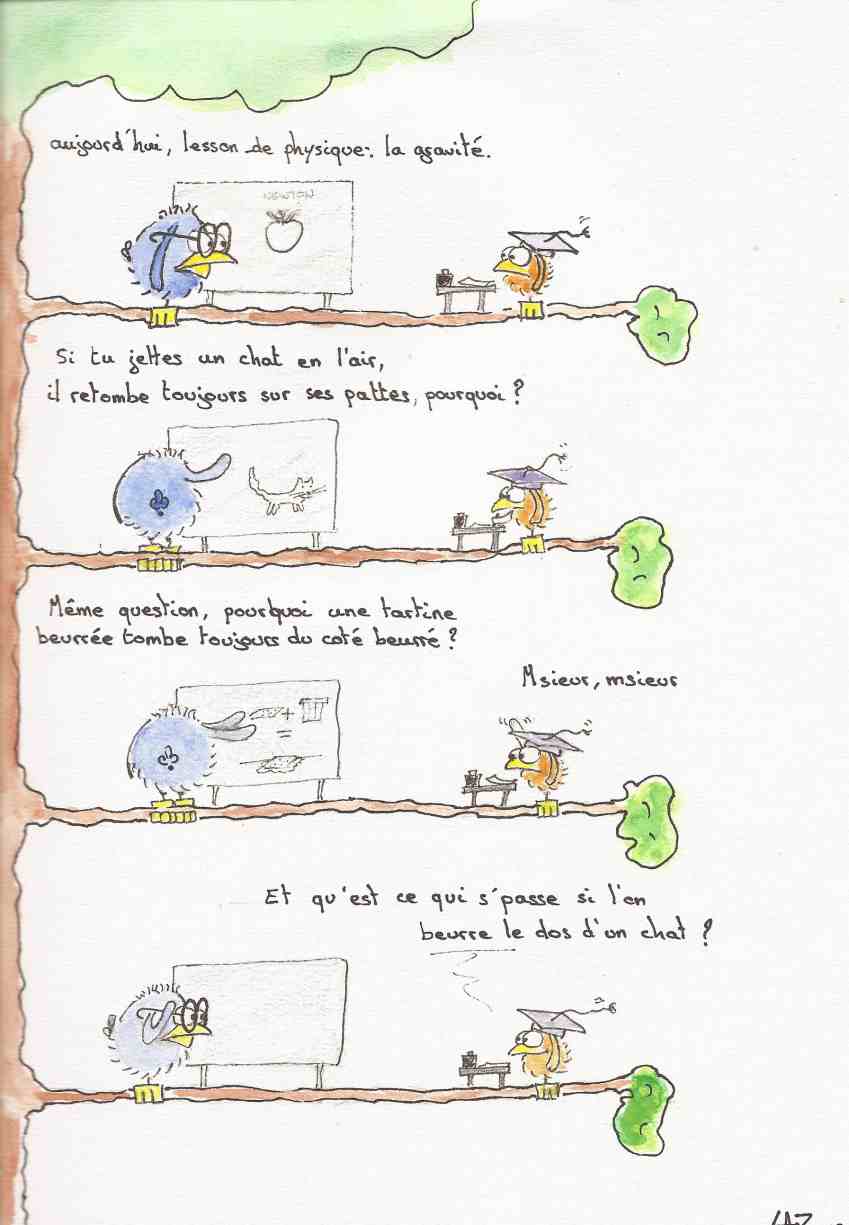 aujourd'hui, lesson de physique: la gravité.
NEWTON
Si tu jettes un chat en l'air,
il retombe toujours sur ses pattes, pourquoi ?
Même question, pourquoi une tartine
beurrée tombe toujours du coté beurré ?
Msieur, msieur
+
=
Et qu'est ce qui s'passe si l'on
beurre le dos d'un chat ?